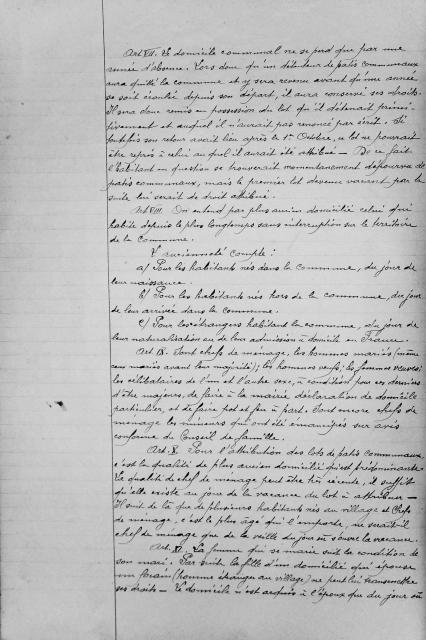 Art VII. Le domicile communal ne se perd que par une
année d'absence. Lors donc qu'un détenteur de patis communaux
aura quitté la commune et y sera revenu avant qu'une année
se soit écoulée depuis son départ, il aura conservé ses droits.
Il sera donc remis en possession du lot qu'il détenait primi-
tivement et auquel il n'aurait pas renoncé par écrit. Si
toutefois son retour avait lieu après le 1er Octobre, ce lot ne pourrait
être repris à celui auquel il aurait été attribué — De ce fait
l'habitant en question se trouverait momentanément dépourvu de
patis communaux, mais le premier lot devenu vacant par la
suite lui serait de droit attribué.
Art VIII. On entend par plus ancien domicilié celui qui
habite depuis le plus longtemps sans interruption sur le territoire
de la Commune.
L'ancienneté compte :
a) Pour les habitants nés dans la commune, du jour de
leur naissance.
b) Pour les habitants nés hors de la commune, du jour
de leur arrivée dans la commune.
c) Pour les étrangers habitant la commune, du jour de
leur naturalisation ou de leur admission à domicile en France.
Art IX. Sont chefs de ménage, les hommes mariés (même
ceux mariés avant leur majorité); les hommes veufs; les femmes veuves;
les célibataires de l'un et l'autre sexe, à condition pour ces derniers
d'être majeurs, de faire à la mairie déclaration de domicile
particulier, et de faire pot et feu à part. Sont encore chefs de
ménage les mineurs qui ont été émancipés sur avis
conforme du Conseil de famille.
Art. X. Pour l'attribution des lots de patis communaux,
c'est la qualité de plus ancien domicilié qui est prédominante.
La qualité de chef de ménage peut être très récente, il suffit
qu'elle existe au jour de la vacance du lot à attribuer —
Il suit de là que de plusieurs habitants nés au village et Chefs
de ménage, c'est le plus âgé qui l'emporte, ne serait-il
chef de ménage que de la veille du jour où s'ouvre la vacance.
Art. XI. La femme qui se marie suit la condition de
son mari. Par suite la fille d'un domicilié qui épouse
un forain (homme étranger au village) ne peut lui transmettre
ses droits — Le domicile n'est acquis à l'époux que du jour où